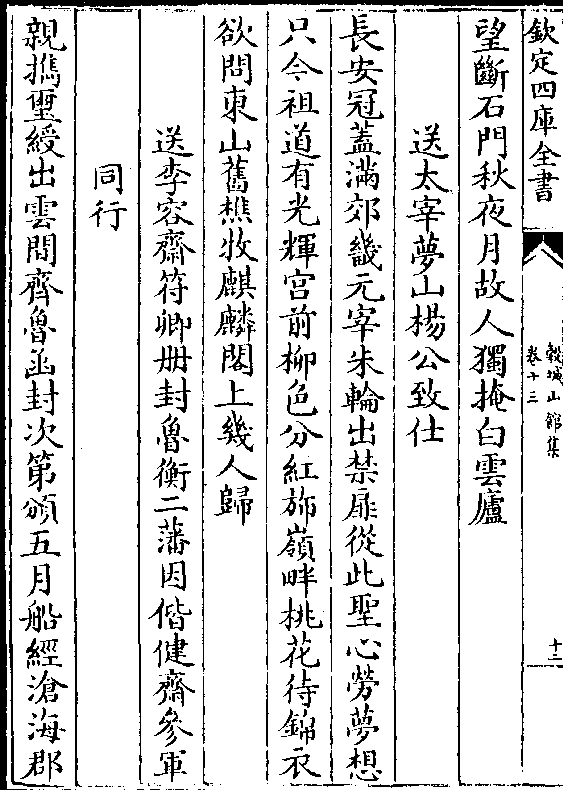 欽定四庫全書
穀城山館集
卷十三
十二
望斷石門秋夜月故人獨掩白雲廬
送太宰夢山楊公致仕
長安冠蓋滿郊畿元宰朱輪出禁扉從此聖心勞夢想
只令祖道有光輝宫前柳色分紅斾嶺畔桃花待錦衣
欲問東山舊樵牧麒麟閣上幾人歸
送李容齋符卿册封魯衡二藩因偕健齋參軍
同行
親攜璽綬出雲間齊魯函封次第頒五月船經滄海郡